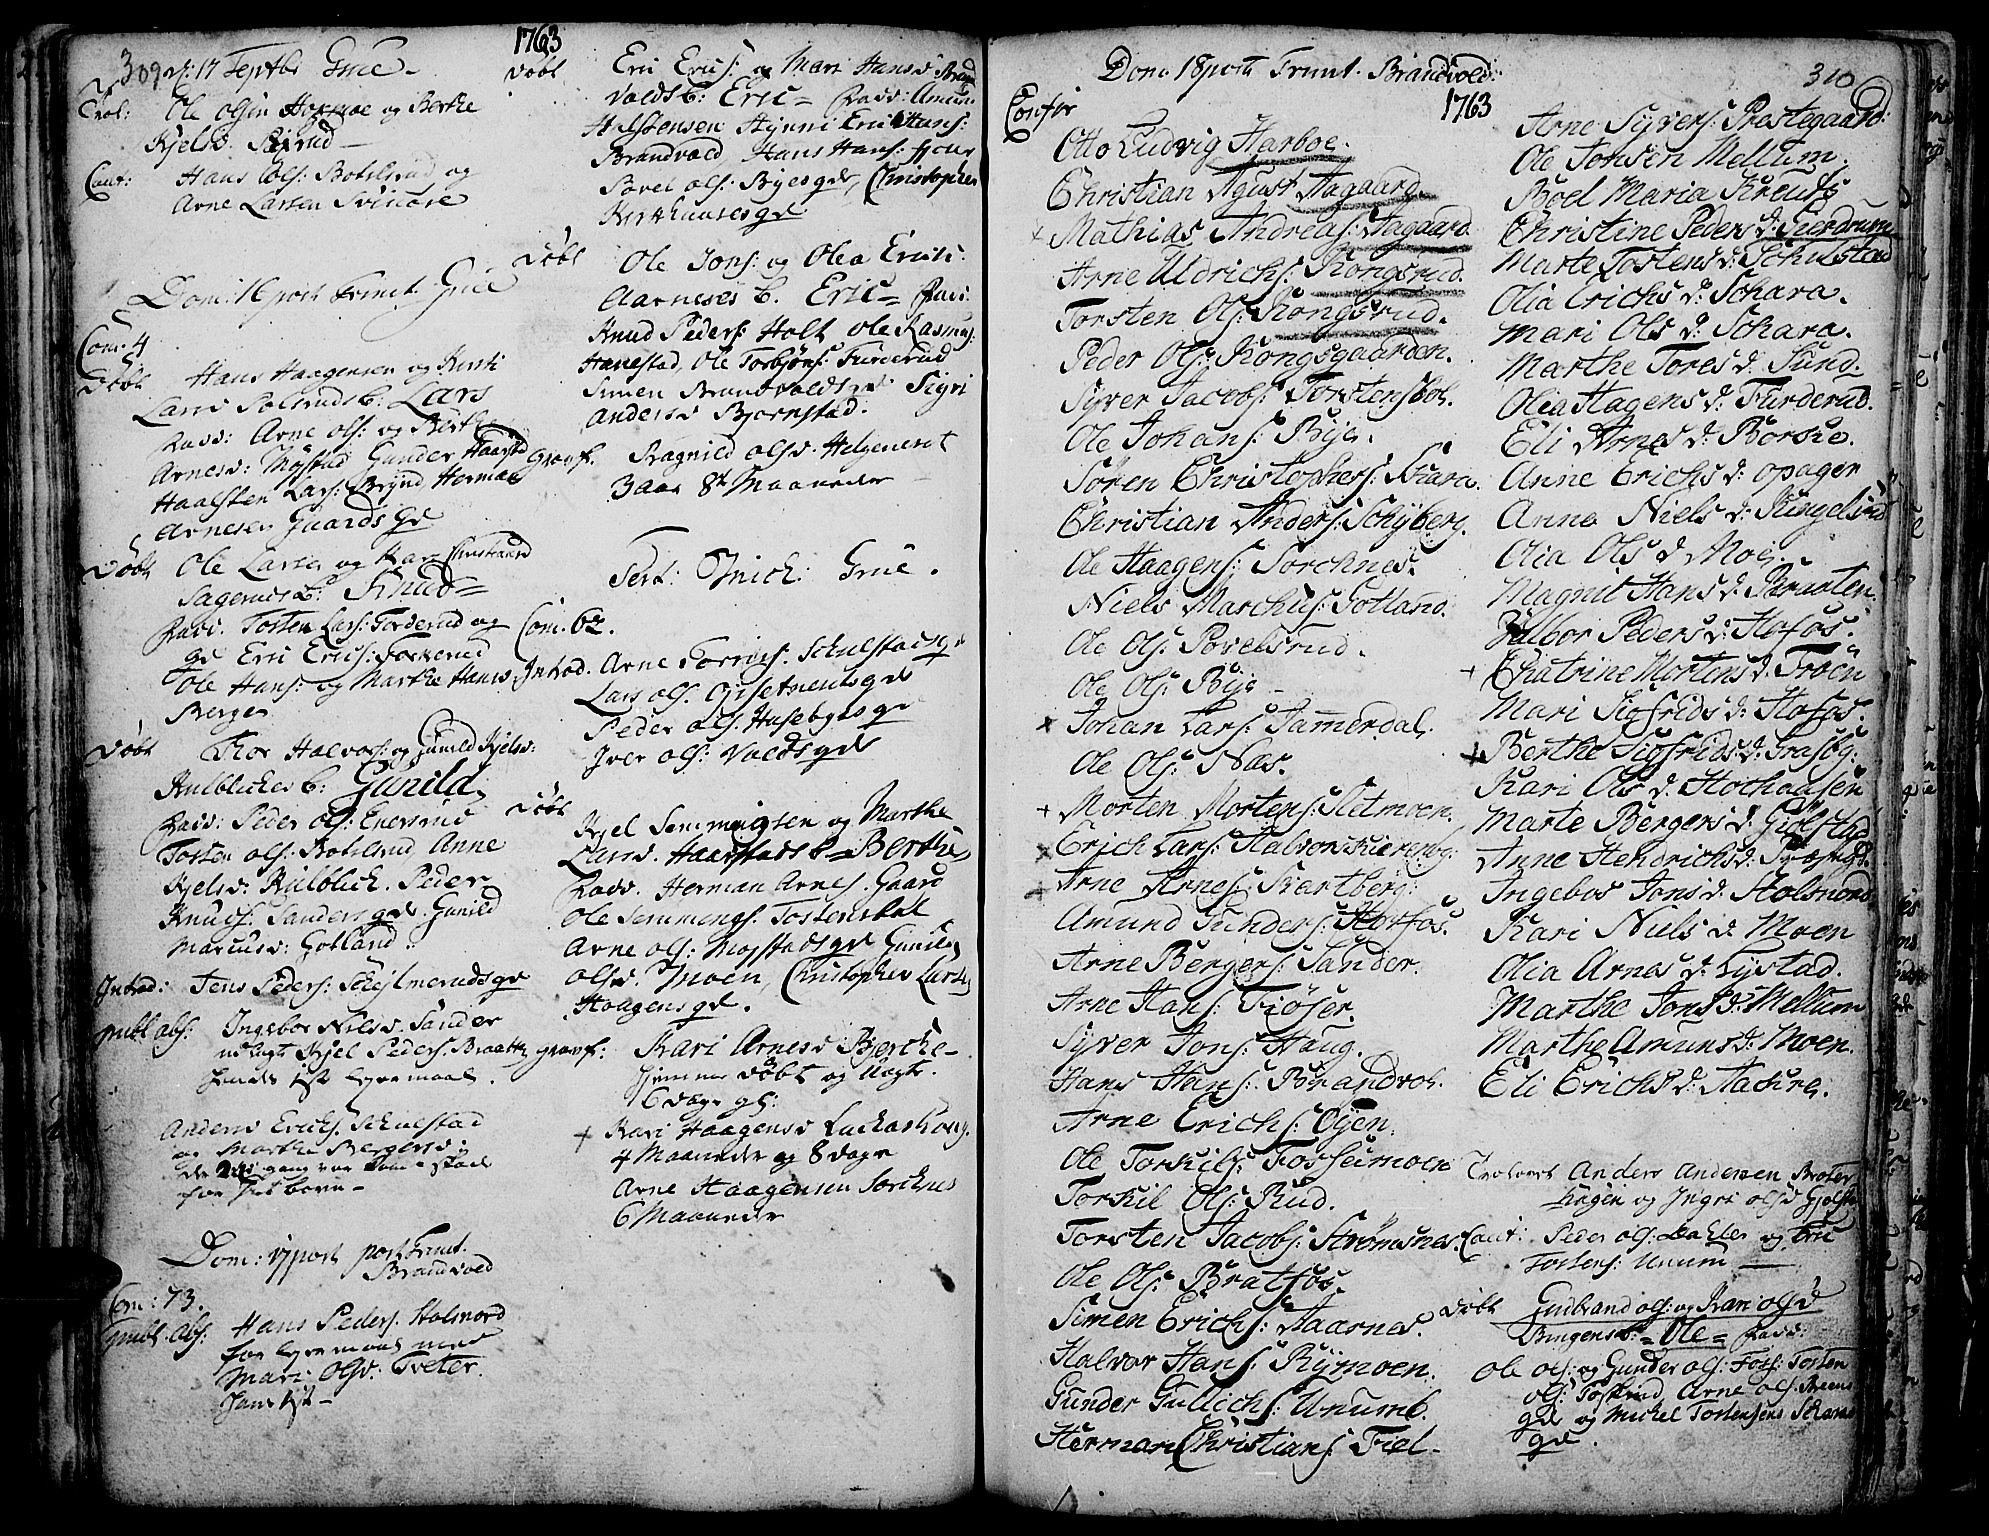 309
d: 17 Septbr Grue
1763
Trol: Ole Olsen Hoxmoe og Berthe
Kjelsd.
Caut: Hans Ols: Botelsrud og
Arne Larsen Svinaase
Dom: 16 post Trinit. Grue
Com. 4
Døbt Hans Haagensen og Kirsti
Larsd Solsruds b: Lars
Fadd: Arne Ols: og Berthe
Arnesd: Møystad Gunder Haarstad
Haalsten Lars: Brynd, Herman
Arnesen Gaards gd
Døbt Ole Larsen og Kari
Sagerud b: Knud
Fadd. Tosten Lars: Forderud og
gd Eric Erics:
Ole Hans: og Marthe Hansd
Berger
Døbt Thor Halvors: og Gunild Kjelsd:
Kulblickes b: Gunild
Fadd: Peder Ols: Enersrud
Tosten Ols: Botelsrud Anne
Kjelsd: Kulblick. Peder
Knuds: Sanders gd. Gunild
Marcusd: Gotland
Introd: Jens Peders: gd
publ abs: Ingebor Nilsd. Sander
udlagt Kjel Peders. Braathe
hendes 1st leyermaal.
Anders Erichs. Schulstad
og Marthe Bergersd:
2den gang
for
Dom: 17 post post Trinit.
Brandvold
Com: 73.
publ. abs: Hans Peders: Holsnord
for leyermaal med
Mari Olsd. Tveter.
hans 1st
Døbt Eric Erics: og Mari Hansd Brand
volds b: Eric = Fadd: Amun
Helstensen Hynni Eric Hans:
Brandvold, Hans Hans: Fjøser
Povel Ols: Byes gd, Christopher
Kirkhuuses gd
Døbt Ole Jons: og Olea Erichs:
Aarneses b. Eric = Fadd:
Knud Peders: Holt Ole Rasmus:
Hanestad, Ole Torbjørns: Furderud
Simen Brandvolds gd Sigri
Andersd Bjørnstad.
Gravf. Ragnild Olsd. Helgeneset
3 aar 8t Maaneder
Fest: Mich: Grue.
Com. 62.
Introd. Arne Torres. Schulstads gd
Lars Ols. gd
Peder Ols. Husebyes gd
Iver Ols: Volds gd
Døbt Kjel Semmingsen og Marthe
Larsd. Haarstads b = Berthe
Fadd. Herman Arnes. Gaard
Ole Semmings: Tostensbøl
Arne Ols: Møystads gd Gunild
Olsd. Moen, Christopher Lars
Haagens gd.
Gravf: Kari Arnesd Bjercke
hjemme døbt og
6 dage gl:
+ Kari Haagensd
4 Maaneder og 8 dage
Arne Haagensen Sorknes
6 Maaneder
Dom. 18 post Trinit. Brandvold:
310
1763
Confir
Otto Ludvig Harboe.
Christian Agust Aagaard.
+ Mathias Andreas: Aagaard
Arne Uldrichs: Kongsrud.
Torsten Ols: Kongsrud.
Peder Ols: Kongsgaarden.
Syver Jacobs: Torstensbøl.
Ole Johans: Bye.
Søren Christophers: Skara.
Christian Anders: Schyberg.
Ole Haagens: Sorchnes.
Niels Marchus: Gotland.
Ole Ols: Povelsrud.
Ole Ols: Bye
+ Johan Lars: Jammerdal.
Ole Ols: Næs.
+ Morten Mortens: Sletmoen.
+ Erich Lars:
+ Arne Arnes: Svartberg:
Amund Gunders: Horfos.
Arne Bergers: Sander.
Arne Hans: Fiøser.
Syver Jons: Haug.
Hans Hans: Brandvol.
Arne Erichs: Øyen.
Ole Torkils: Fossumoen
Torkil Ols: Rud.
Torsten Jacobs: Strømsnes.
Ole Ols: Bratfos.
Simen Erichs: Aaarnes.
Halvor Hans: Rymoen.
Gunder Gullichs: Unumb.
Herman Christians: Fiel
Arne Syvers: Prestegaard:
Ole Jonsen Mellum.
Boel Maria Kreutz
Christine Peders d: Gierdrum
Marte Tostens d: Schulstad
Olia Erichs d: Schara.
Mari Ols d: Schara.
Marthe Tores d: Sund.
Olia Hagens d: Furderud.
Eli Arnes d: Borske.
Anne Erichs d: Opager
Anne Niels d: Ringelsrud
Olia Ols d Moe.
Magnil Hans d: Braaten.
Valbor Peders d: Hofos.
+ Chatrine Mortens d: Troen
Mari Sigfrids d: Hofos.
+ Berthe Sigfrids d: Grasbg:
Kari Ols d: Stochaasen
Marte Bergers d: Giølstad
Anne Hendrichs d:
Ingebor Jons d: Holsnord
Kari Niels d: Moen
Olia Arnes d: Lystad.
Marthe Jons d: Mellum
Marthe Amuns d: Moen.
Eli Erichs d: Aachre.
Trolovet Anders Andersen Broter
hagen og Ingri Olsd Gjølstad
Caut: Peder Ols: Dahler og Eric
Tostens: Unum
Døbt Gudbrand Ols: og Kari Olsd
Bingens b: = Ole = Fadd:
Ole Ols: og Gunder Ols: Foss: Tosten
Ols: Arne Ols.
gd og Michel Tostensens Skaras
gd.